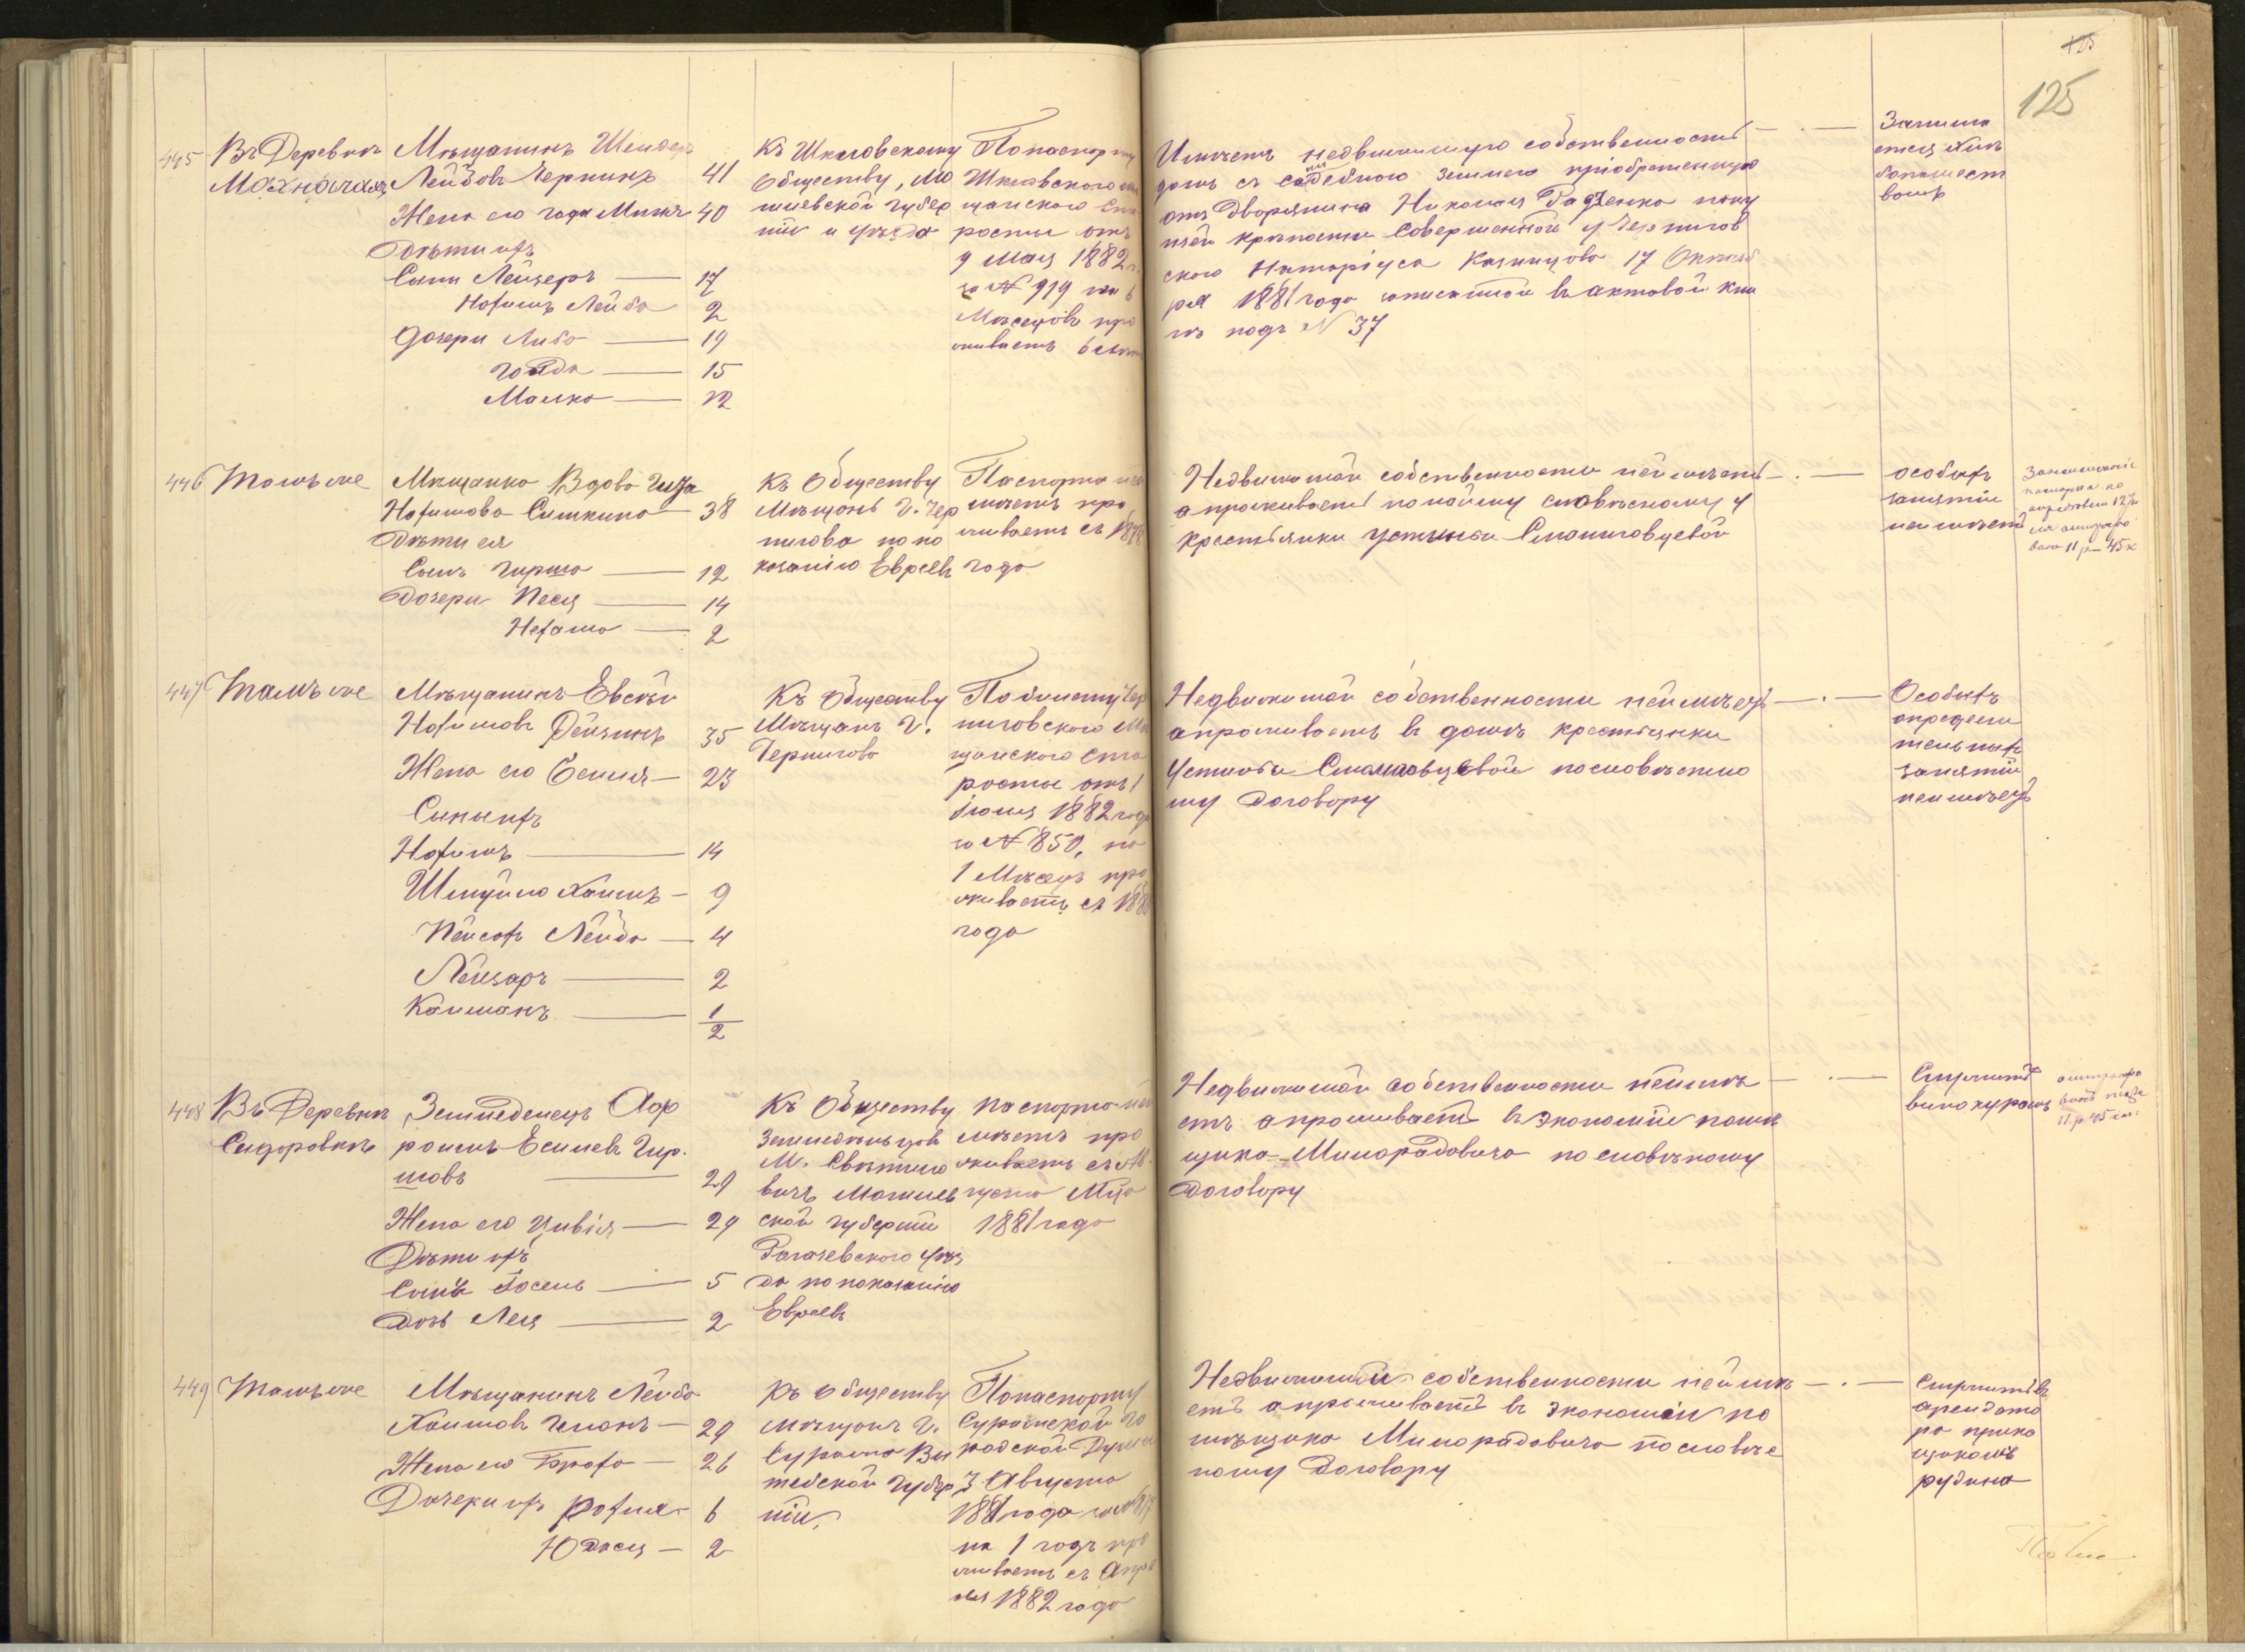 125
125
445
Въ Деревнѣ
Мохначахъ
Мѣщанинъ Шендеръ
Лейбовъ Чернинъ 41
Жена его Года Минъ 40
Дѣти ихъ
Сыни Лейзеръ — 17
Нохимъ Лейба 2
Дочери Либа — 19
Гольда — 15
Малка — 12
Къ Шкловскому
Обществу, Мо
гилевской губер
ніи и уѣзда
По паспорту
Шкловского мѣ
щанского ста
росты отъ
9 Мая 1882 г.
за № 919 на 6
Мѣсяцовъ про
живаетъ 6 лѣтъ
Имѣетъ недвижимую собственность
домъ съ садебною землею пріобретенную
отъ Дворянина Николая Радченка по ку
пчей крѣпости Совершенной у Чернигов
ского Натаріуса Казанцова 17 Октяб
ря 1881 года записанной въ актовой кни
гѣ подъ № 37
Занима
ется хлѣ
бопашест
вомъ
446
Тамъ же
Мѣщанка Вдова Гиза
Нохимова Сишкина — 38
Дѣти ея
Сынъ Гирша — 12
Дочери Песя — 14
Нехама — 2
Къ Обществу
Мѣщанъ г. Чер
нигова по по
казанію Евреевъ
Паспорта не
имѣетъ про
живаетъ съ 1878
года
Недвижимой собственности неимѣетъ —
а проживаетъ по найму словѣсному у
крестьянки Устиньи Смаликовцевой
особыхъ
занятій
неимѣетъ
11 р — 45 к
447
Тамъ же
Мѣщанинъ Евсѣй
Нохимовъ Дейчинъ 35
Жена его Есшя — 23
Сыны ихъ
Нохимъ — 14
Шмуйло Хаимъ — 9
Пейсахъ Лейба — 4
Лейзаръ — 2
Калманъ — 1/2
Къ Обществу
Мѣщанъ г.
Чернигова
По билету Чер
ниговского Мѣ
щанского ста
росты отъ 1
Іюня 1882 года
за № 850, на
1 Мѣсяцъ про
живаетъ съ 1880
года
Недвижимой собственности неимѣетъ —
а проживаетъ въ домѣ крестьянки
Устиньи Смаликовцевой по словѣсно
му Договору
Особыхъ
определи
тельныхъ
занятій
неимѣетъ
448
Въ Деревнѣ
Сидоровкѣ
Земледелецъ Аф
роимъ Есилевъ Гир.
шовъ — 29
Жена его Цивія — 29
Дѣти ихъ
Сынъ Іосель — 5
Дочь Лея — 2
Къ Обществу
Земледѣльцовъ
М. Святило
вичъ Могилев
ской губерніи
Рагачевского уѣз
да по показанію
Евреевъ
Паспорта не
имѣетъ про
живаетъ съ Ав
густа М-ца
1881 года
Недвижимой собственности неимѣ —
етъ а проживаетъ въ экономіи помѣ
щика Милорадовича по словѣсному
Договору
Служитъ
винокуромъ
11 р 45 к
449
Тамъ же
Мѣщанинъ Лейба
Хаимовъ Ициманъ — 29
Жена его Броха — 26
Дочери ихъ Рохля — 6
Юдася — 2
Къ Обществу
мѣщанъ г.
Суража Ви
тебской губер
ніи.
По паспорту
Суражской Го
родской Думы
3 Августа
1881 года за №
на 1 годъ про
живаетъ съ Апрѣ
ля 1882 года
Недвижимой собственности неимѣ —
етъ а проживаетъ въ экономіи по
мѣщика Милорадовича по словѣс
ному Договору
Служитъ въ
арендато
ра прика
щикомъ
рудина